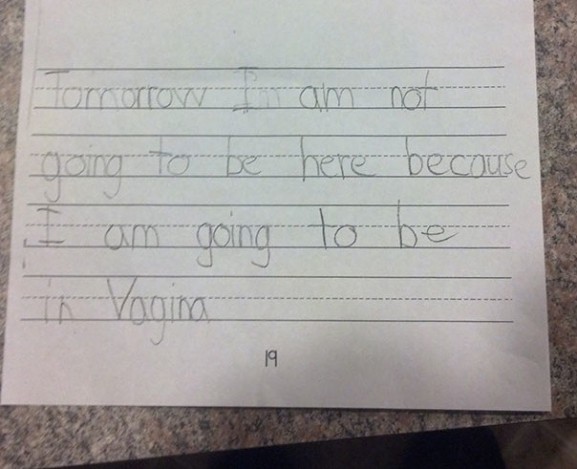 Tomorrow I am not
going to be here because
I am going to be
in Vagina
19